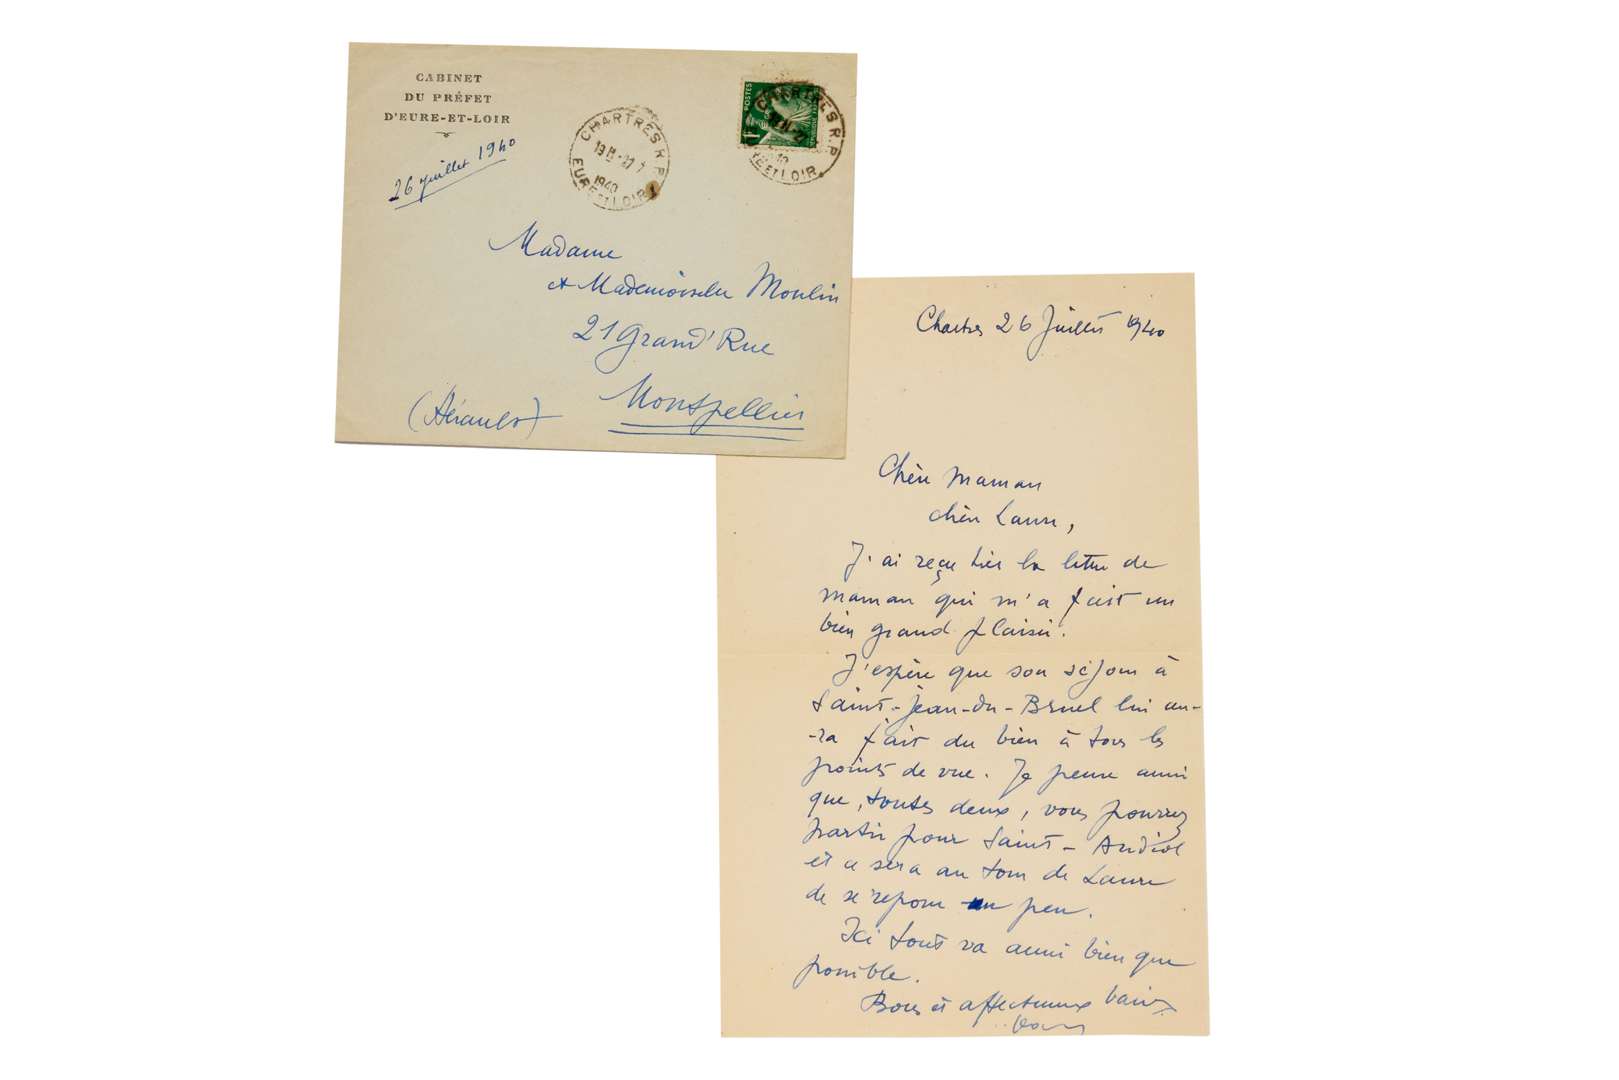 CABINET
DU PRÉFET
D'EURE-ET-LOIR
26 juillet 1940
CHARTRES R.P.
19H -27 7
1940
EURE ET LOIR
POSTES
1F
CHARTRES R.P.
ET LOIR
Madame
et Mademoiselle Moulin
21 Grand'Rue
Montpellier
(Hérault)
Chartres 26 Juillet 1940
Chère Maman
chère Laure,
J'ai reçu hier la lettre de
maman qui m'a fait un
bien grand plaisir.
J'espère que son séjour à
Saint-Jean-du-Bruel lui au-
-ra fait du bien à tous les
points de vue. Je pense aussi
que, toutes deux, vous pourrez
partir pour Saint-Andiol
et ce sera au tour de Laure
de se reposer un peu.
Ici tout va aussi bien que
possible.
Bons et affectueux baisers